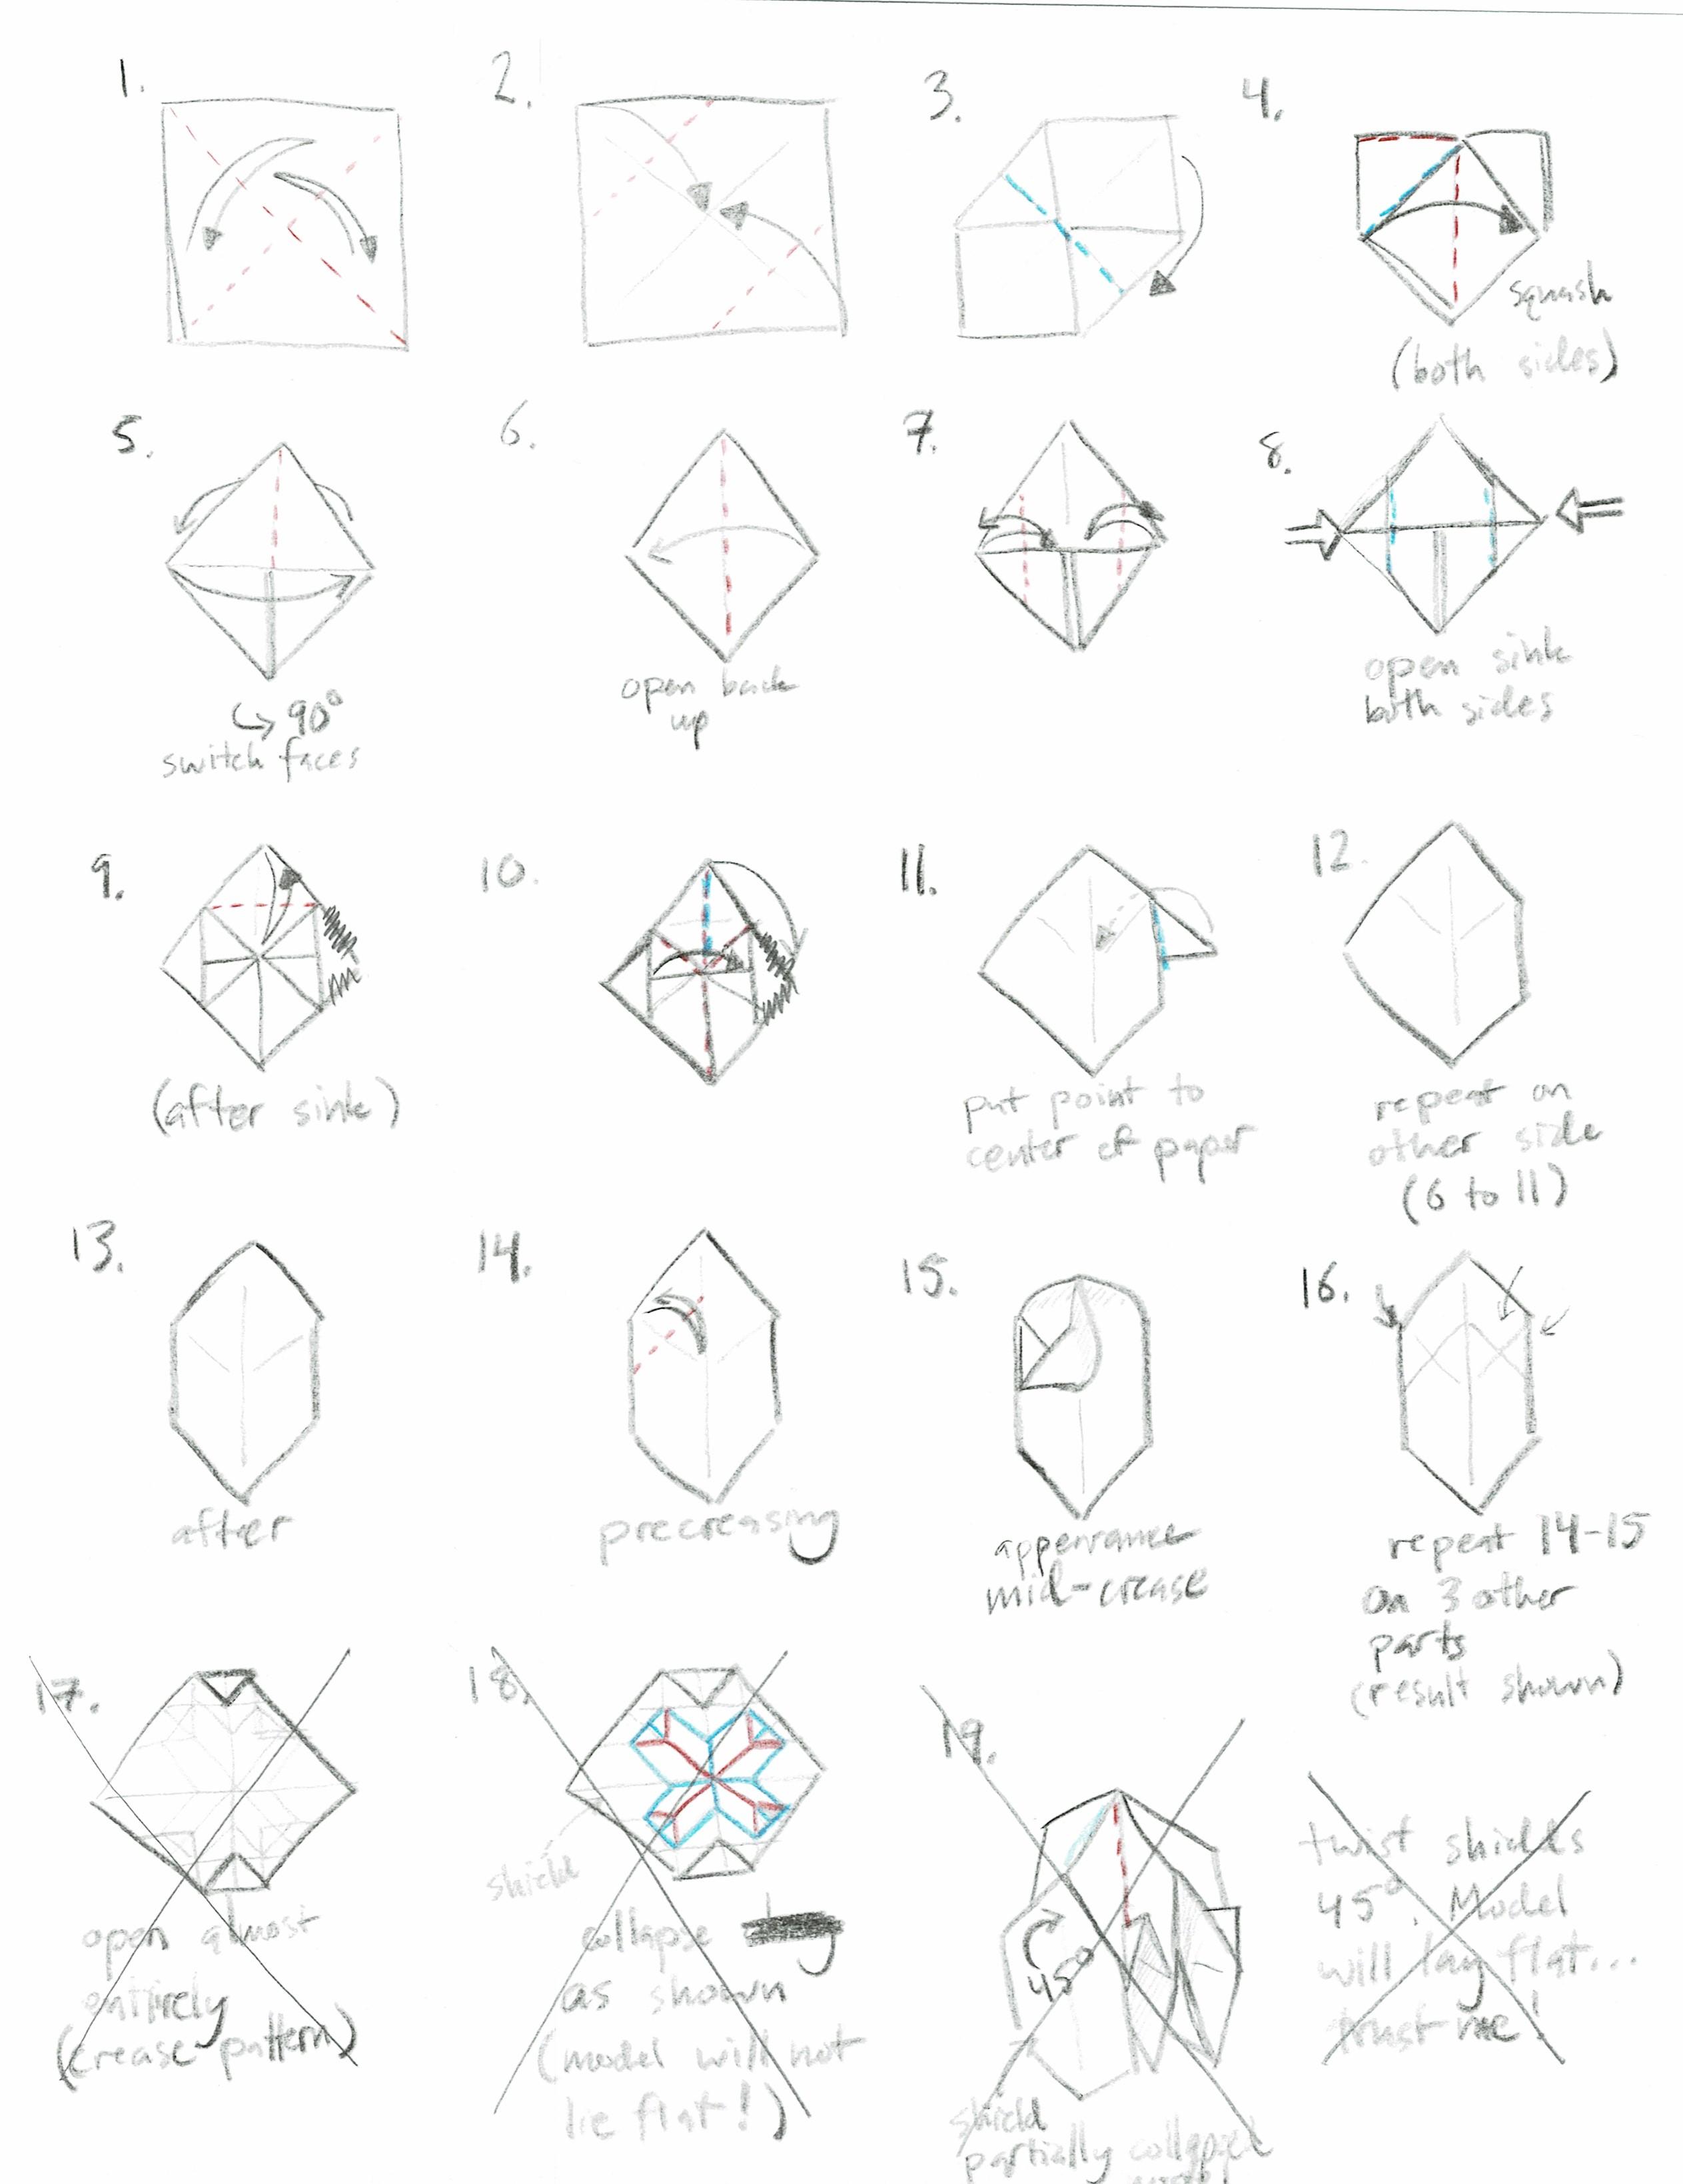 1.
2.
3.
4.
squash
(both sides)
5.
90°
switch faces
6.
open back
up
7.
8.
open sink
both sides
9.
(after sink)
10.
11.
put point to
center of paper
12.
repeat on
other side
(6 to 11)
13.
after
14.
precreasing
15.
appearance
mid-crease
16.
repeat 14-15
on 3 other
parts
(result shown)
17.
open almost
entirely
(crease pattern)
18.
shield
collapse
as shown
(model will not
lie flat!)
19.
45°
shield
partially collapsed
twist shields
45°. Model
will lay flat...
trust me!